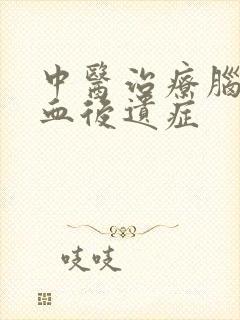 中醫治療腦
血後遺症
吱吱